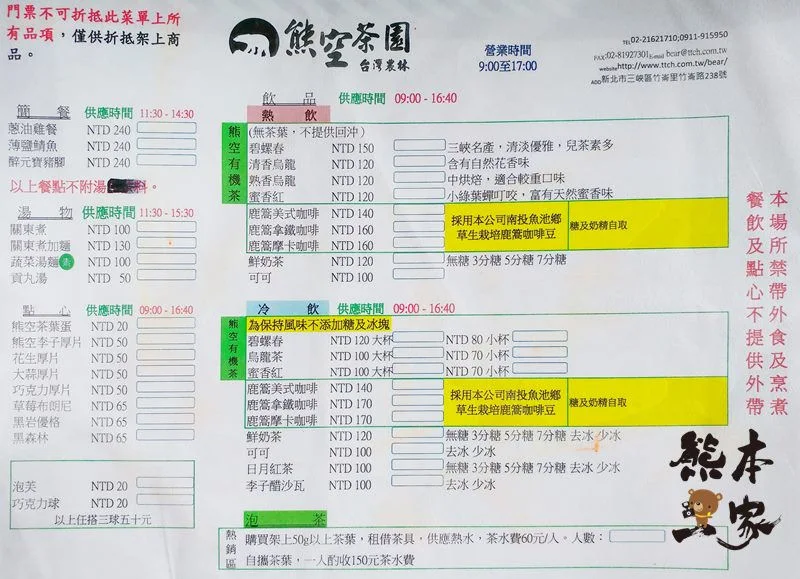 門票不可折抵此菜單上所
有品項，僅供折抵架上商
品。
熊空茶園
台灣農林
營業時間
9:00至17:00
TEL02-21621710;0911-915950
FAX:02-81927301E-mail bear@ttch.com.tw
websitehttp://www.ttch.com.tw/bear/
ADD新北市三峽區竹崙里竹崙路238號
簡餐 供應時間 11:30 - 14:30
蔥油雞餐 NTD 240
薄鹽鯖魚 NTD 240
醉元寶豬腳 NTD 240
以上餐點不附湯 料。
湯物 供應時間 11:30 - 15:30
關東煮 NTD 100
關東煮加麵 NTD 130
蔬菜湯麵 素 NTD 100
貢丸湯 NTD 50
點心 供應時間 09:00 - 16:40
熊空茶葉蛋 NTD 20
熊空李子厚片 NTD 50
花生厚片 NTD 50
大蒜厚片 NTD 50
巧克力厚片 NTD 50
草莓布朗尼 NTD 65
黑岩優格 NTD 65
黑森林 NTD 65
泡芙 NTD 20
巧克力球 NTD 20
以上任搭三球五十元
飲品 供應時間 09:00 - 16:40
熱飲
熊空有機茶
(無茶葉，不提供回沖)
碧螺春 NTD 150 三峽名產，清淡優雅，兒茶素多
清香烏龍 NTD 120 含有自然花香味
熟香烏龍 NTD 120 中烘焙，適合較重口味
蜜香紅 NTD 120 小綠葉蟬叮咬，富有天然蜜香味
鹿篙美式咖啡 NTD 140
鹿篙拿鐵咖啡 NTD 160
鹿篙摩卡咖啡 NTD 160
採用本公司南投魚池鄉
草生栽培鹿篙咖啡豆
糖及奶精自取
鮮奶茶 NTD 120 無糖 3分糖 5分糖 7分糖
可可 NTD 100
冷飲 供應時間 09:00 - 16:40
熊空有機茶
為保持風味不添加糖及冰塊
碧螺春 NTD 120 大杯 NTD 80 小杯
烏龍茶 NTD 100 大杯 NTD 70 小杯
蜜香紅 NTD 100 大杯 NTD 70 小杯
鹿篙美式咖啡 NTD 140
鹿篙拿鐵咖啡 NTD 170
鹿篙摩卡咖啡 NTD 170
採用本公司南投魚池鄉
草生栽培鹿篙咖啡豆
糖及奶精自取
鮮奶茶 NTD 120 無糖 3分糖 5分糖 7分糖 去冰 少冰
可可 NTD 100 去冰 少冰
日月紅茶 NTD 100 無糖 3分糖 5分糖 7分糖 去冰 少冰
李子醋沙瓦 NTD 100 去冰 少冰
泡茶
熱銷區
購買架上50g以上茶葉，租借茶具，供應熱水，茶水費60元/人。人數：
自攜茶葉，一人酌收150元茶水費
本場所禁帶外食及烹煮
餐飲及點心不提供外帶
熊本一家